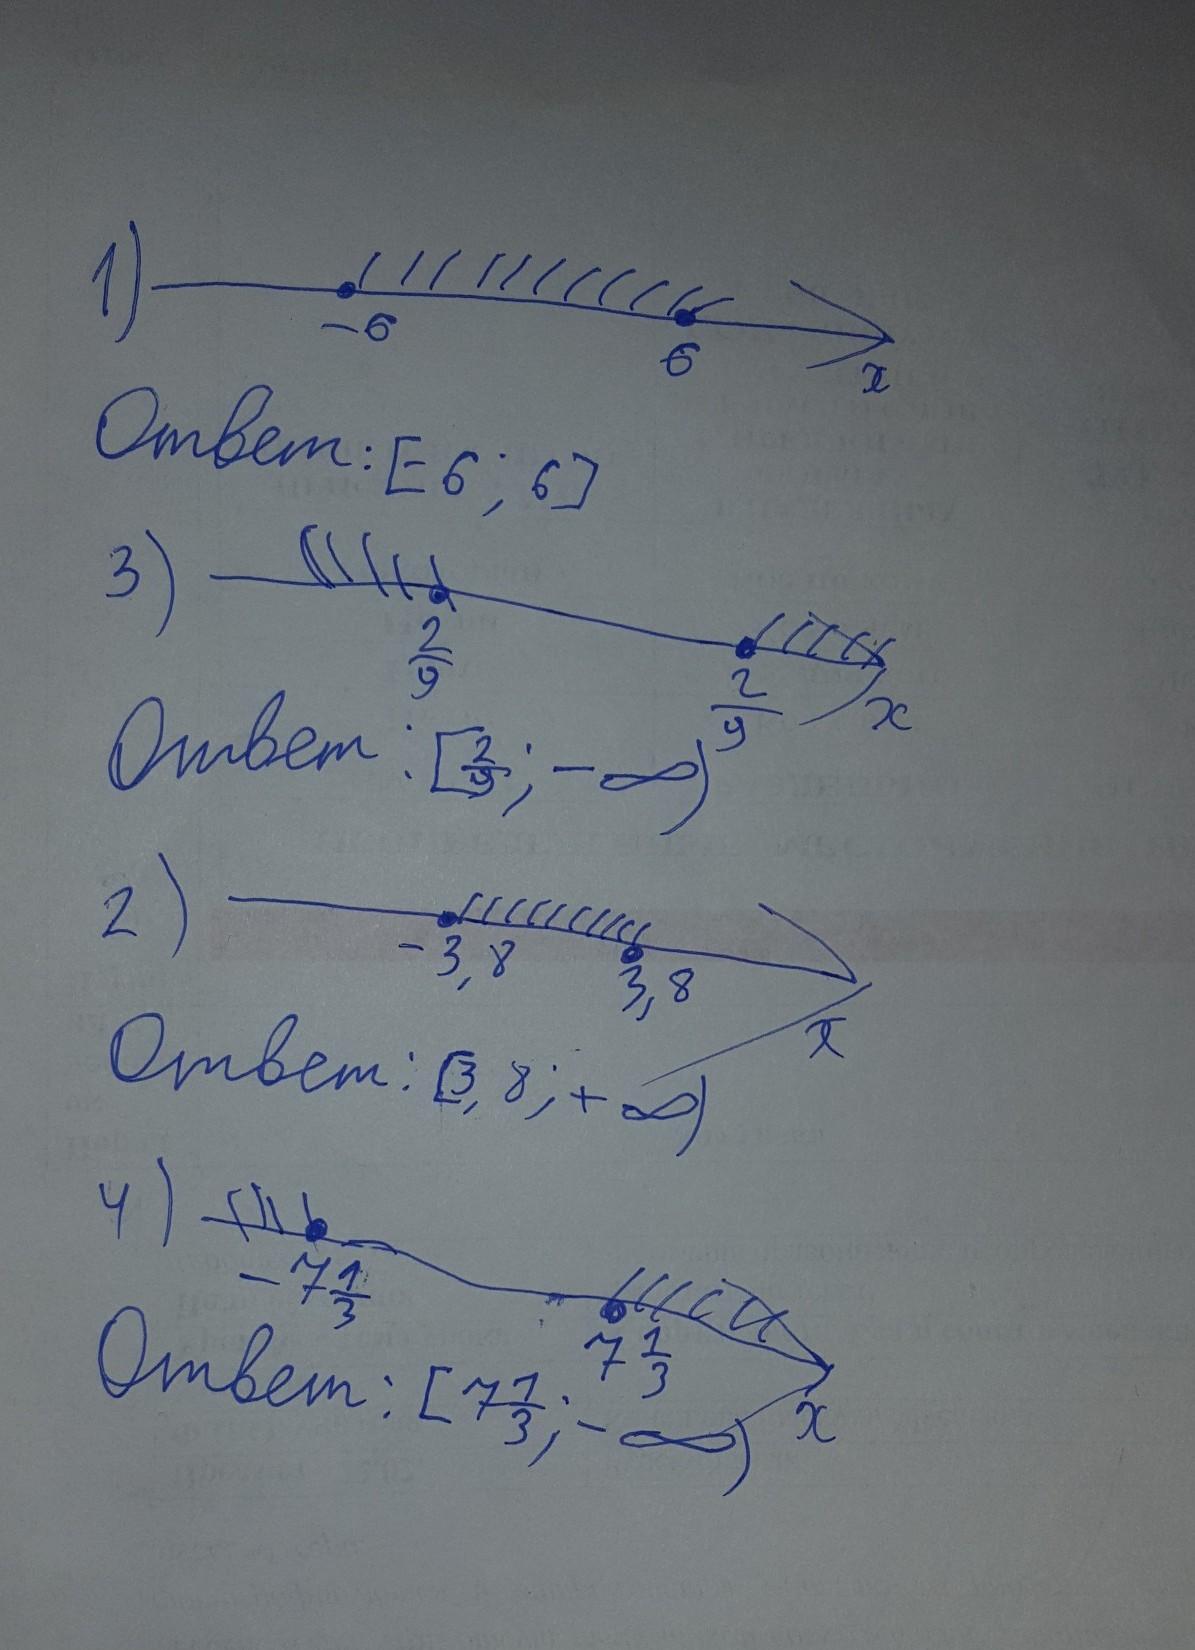 1)
-6 6 x
Ответ: [-6; 6]
3)
2/9 2/9 x
Ответ: [2/9; -∞)
2)
-3,8 3,8 x
Ответ: [3,8; +∞)
4)
-7 1/3 7 1/3 x
Ответ: [7 1/3; -∞)